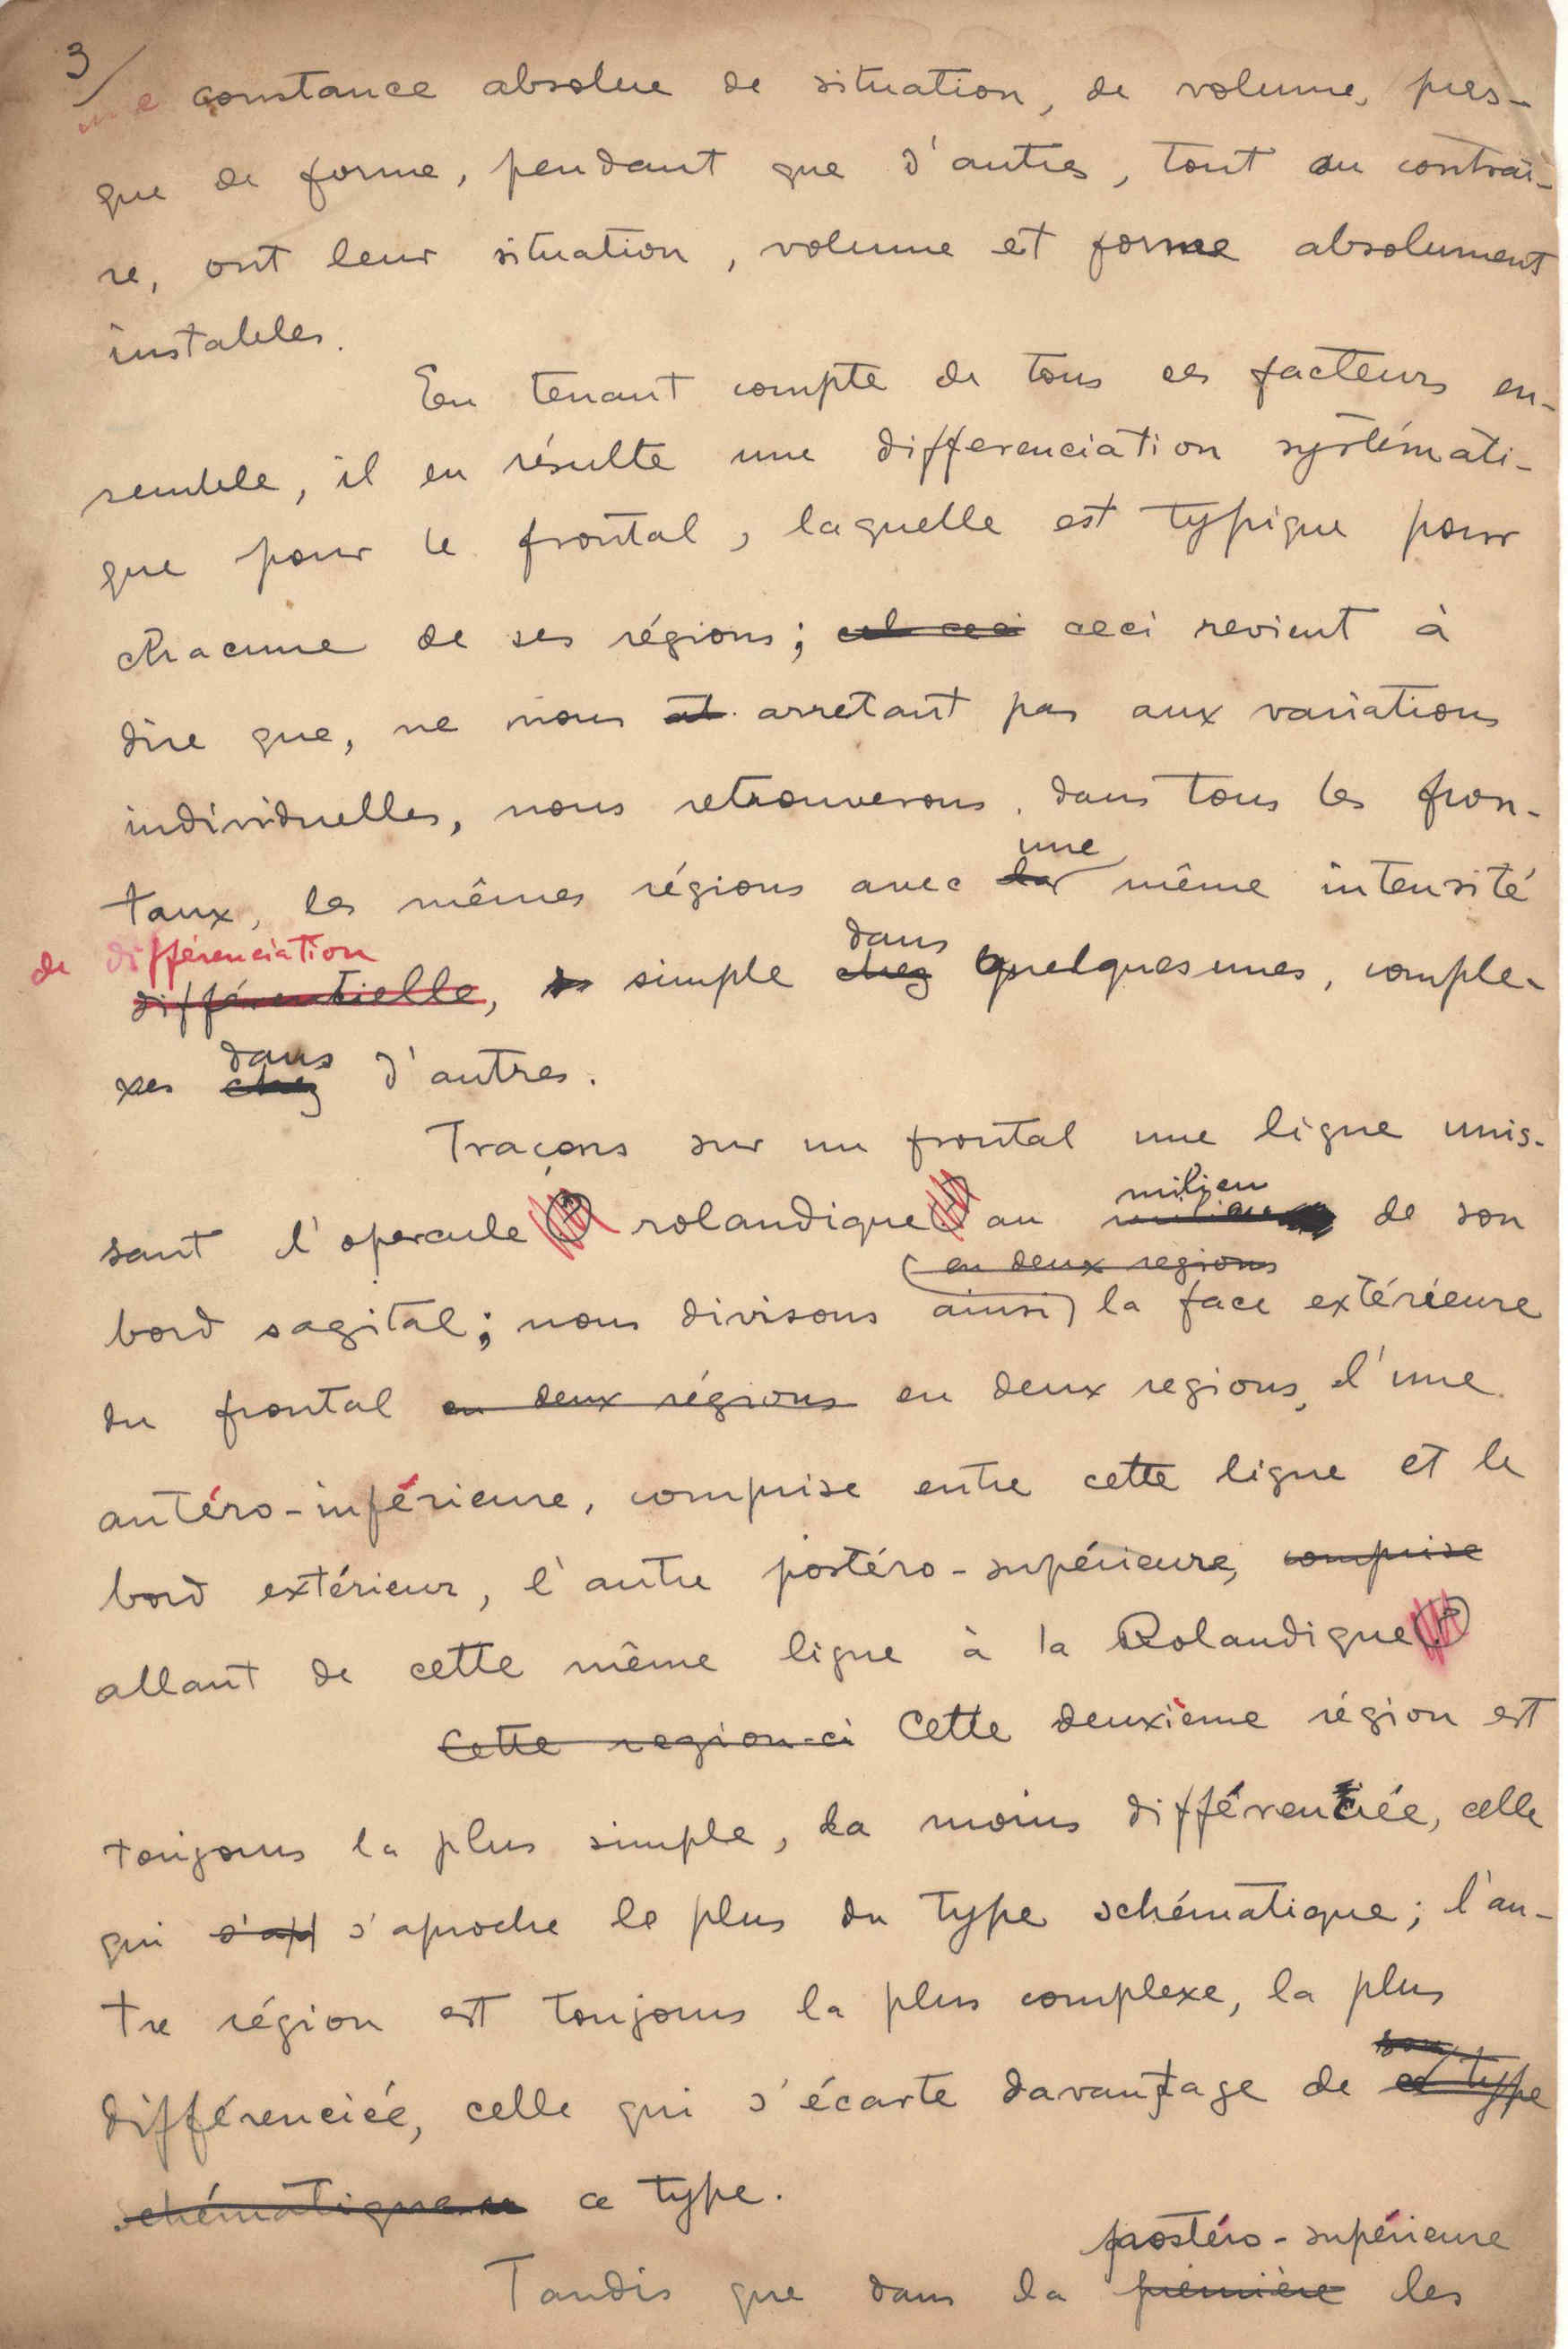 3/
une constance absolue de situation, de volume, pres-
que de forme, pendant que d'autres, tout au contrai-
re, ont leur situation, volume et forme absolument
instables.
En tenant compte de tous ces facteurs en-
semble, il en résulte une differenciation systémati-
que pour le frontal, laquelle est typique pour
chacune de ses régions; ceci revient à
dire que, ne nous arretant pas aux variations
individuelles, nous retrouverons, dans tous les fron-
une
taux, les mêmes régions avec même intensité
de différenciation
dans
différentielle, simple chez quelques unes, comple-
dans
xes chez d'autres.
Traçons sur un frontal une ligne unis-
milieu
sant l'opercule rolandique au milieu de son
en deux regions
bord sagital; nous divisons ainsi la face extérieure
du frontal en deux régions en deux regions, l'une
antéro-inférieure, comprise entre cette ligne et le
bord extérieur, l'autre postéro-supérieure, comprise
allant de cette même ligne à la Rolandique
Cette region-ci Cette deuxième région est
toujours la plus simple, la moins différenciée, celle
qui s'ap s'aproche le plus du type schématique; l'au-
tre région est toujours la plus complexe, la plus
son
différenciée, celle qui s'écarte davantage de ce type
schématique ce type.
postéro-supérieure
Tandis que dans la première les